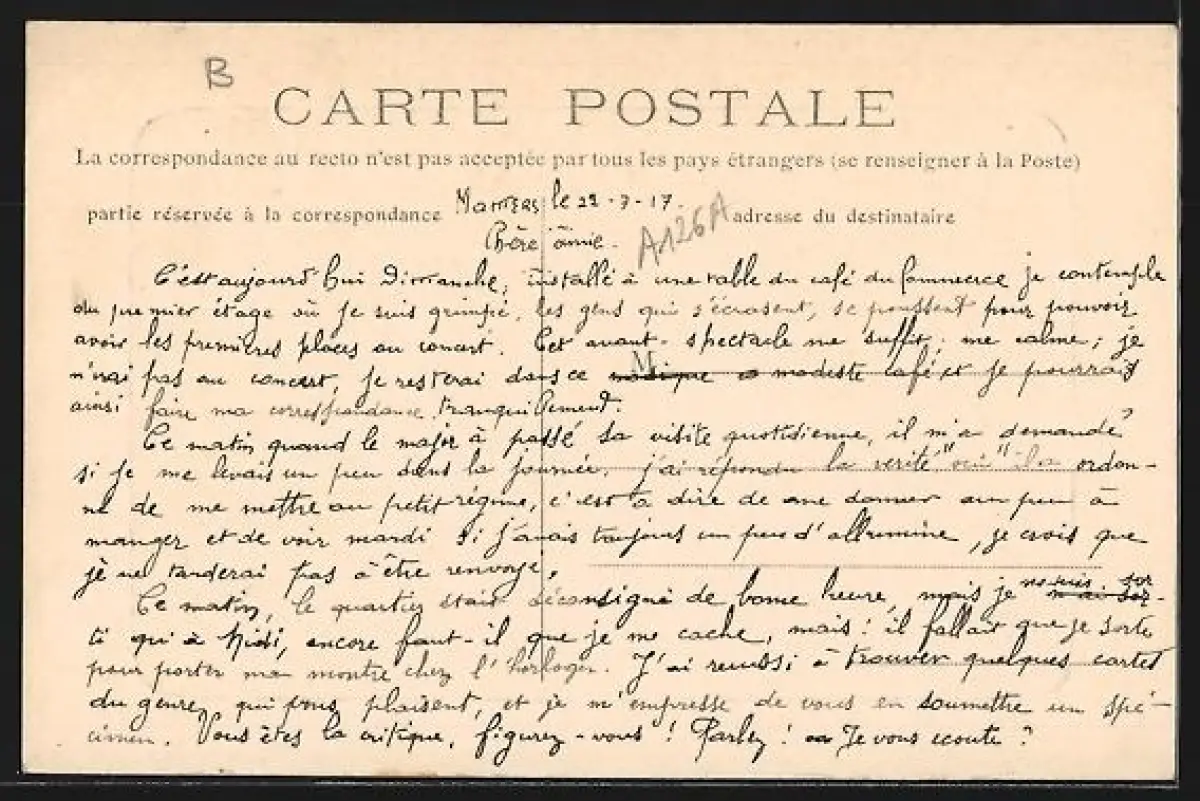 B
CARTE POSTALE
La correspondance au recto n'est pas acceptée par tous les pays étrangers (se renseigner à la Poste)
partie réservée à la correspondance
Mamers le 22-7-17.
adresse du destinataire
A126A
Chère amie.
C'est aujourd'hui Dimanche, installé à une table du café du Commerce je contemple
du premier étage où je suis grimpé, les gens qui s'écrasent, se poussent pour pouvoir
avoir les premières places au concert. Cet avant-spectacle me suffit, me calme; je
n'irai pas au concert, je resterai dans ce modeste café et je pourrais
ainsi faire ma correspondance tranquillement.
Ce matin quand le major à passé sa visite quotidienne, il m'a demandé
si je me levais un peu dans la journée, j'ai répondu la verité "oui" il a ordon-
né de me mettre au petit régime, c'est à dire de me donner un peu à
manger et de voir mardi si j'avais toujours un peu d'albumine, je crois que
je ne tarderai pas à être renvoyé.
Ce matin, le quartier était déconsigné de bonne heure, mais je ne suis sor-
ti qu'à Midi, encore faut-il que je me cache, mais! il fallait que je sorte
pour porter ma montre chez l'horloger. J'ai reussi à trouver quelques cartes
du genre, qui vous plaisent, et je m'empresse de vous en soumettre un spé-
cimen. Vous êtes la critique, figurez-vous! Parlez! Je vous ecoute?